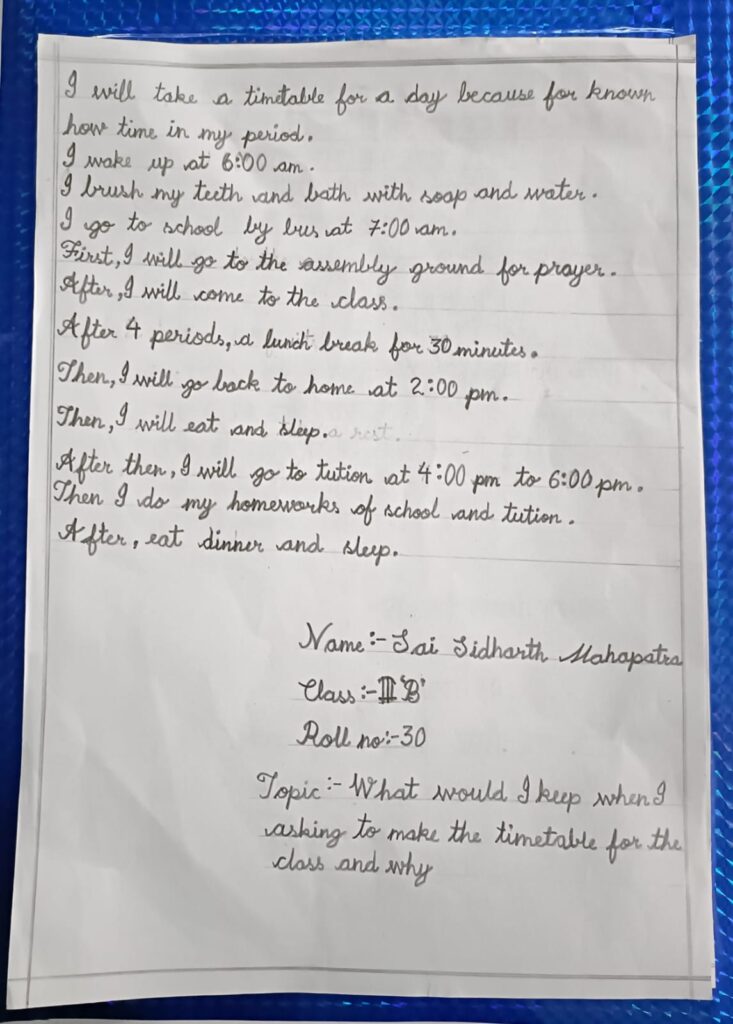 I will take a timetable for a day because for known
how time in my period.
I wake up at 6:00 am.
I brush my teeth and bath with soap and water.
I go to school by bus at 7:00 am.
First, I will go to the assembly ground for prayer.
After, I will come to the class.
After 4 periods, a lunch break for 30 minutes.
Then, I will go back to home at 2:00 pm.
Then, I will eat and sleep. a rest.
After then, I will go to tution at 4:00 pm to 6:00 pm.
Then I do my homeworks of school and tution.
After, eat dinner and sleep.
Name:- Sai Sidharth Mahapatra
Class:- III 'B'
Roll no:- 30
Topic:- What would I keep when I
asking to make the timetable for the
class and why